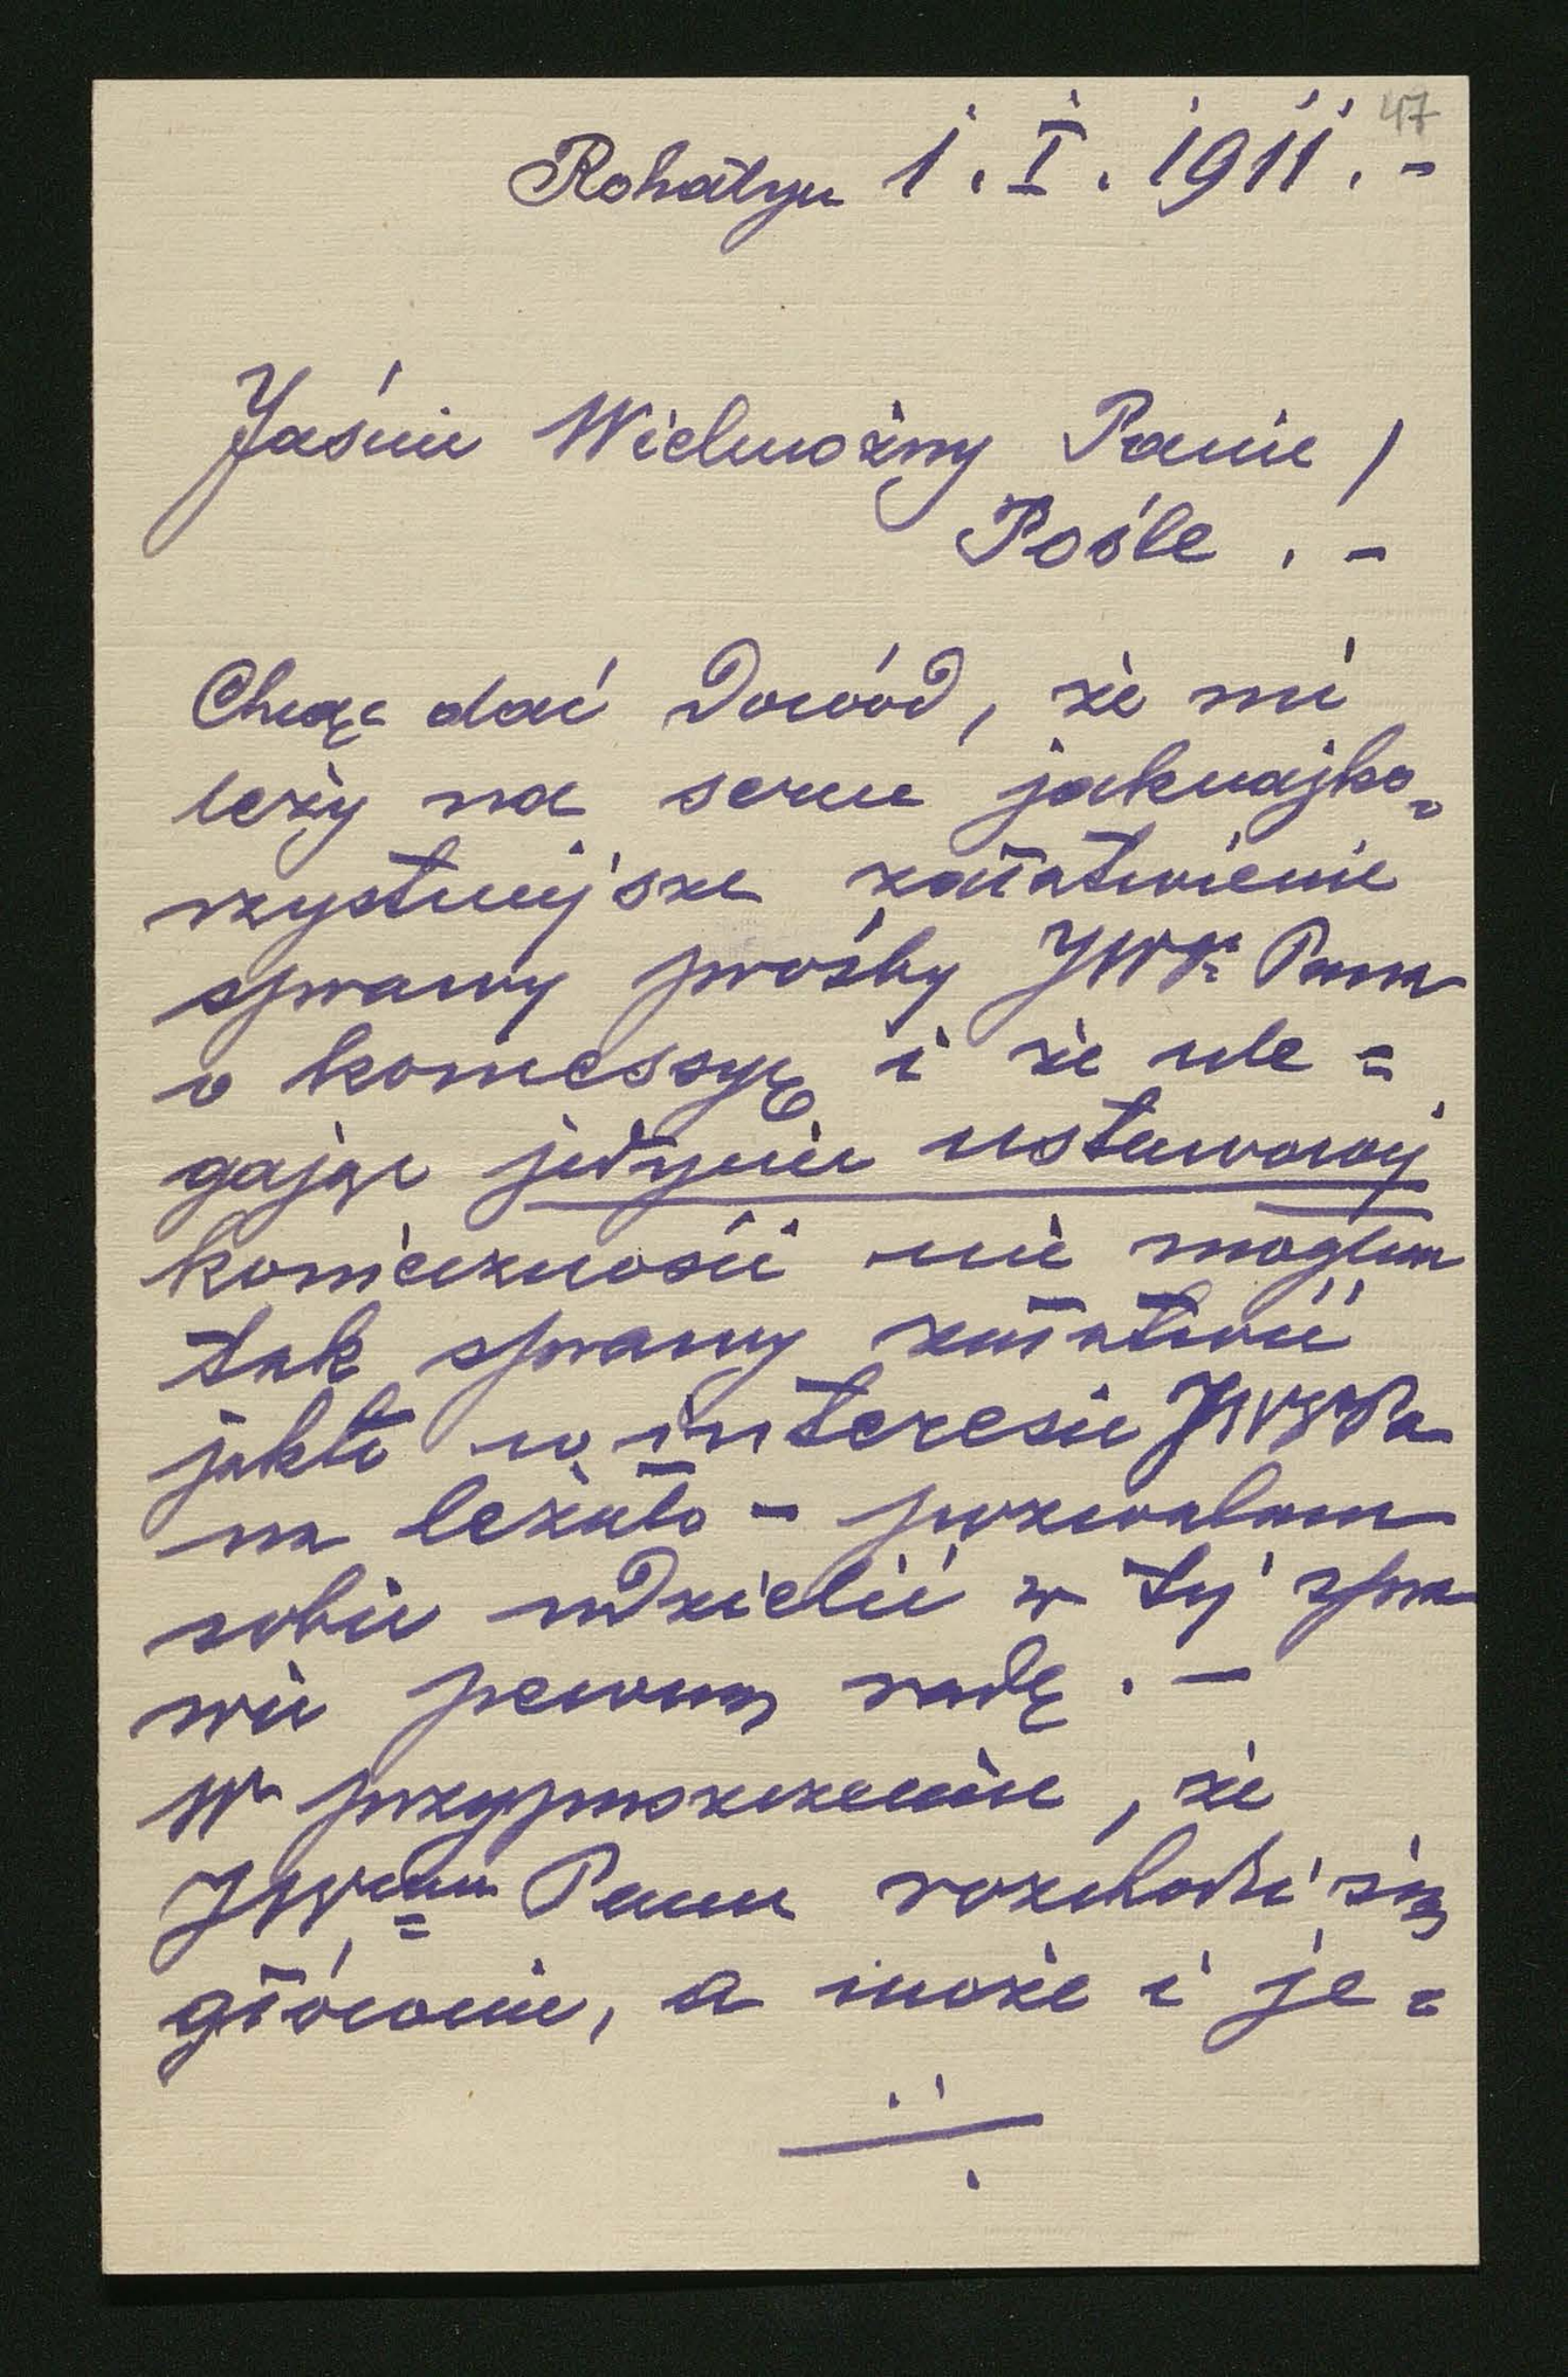 47
Rohatyn 1. I. 1911. -
Jaśnie Wielmożny Panie /
Pośle . -
Chcąc dać dowód, że mi
leży na sercu jaknajko=
rzystniejsze załatwienie
sprawy prośby JWgo Pana
o koncessyę i że ule =
gając jedynie ustawowej
konieczności nie mogłem
tak sprawy załatwić
jakto w interesie JWgo Pa
na leżało - pozwalam
sobie udzielić w tej spra
wie pewną radę . -
W przypuszczeniu, że
JWemu Panu rozchodzi się
głównie, a może i je =